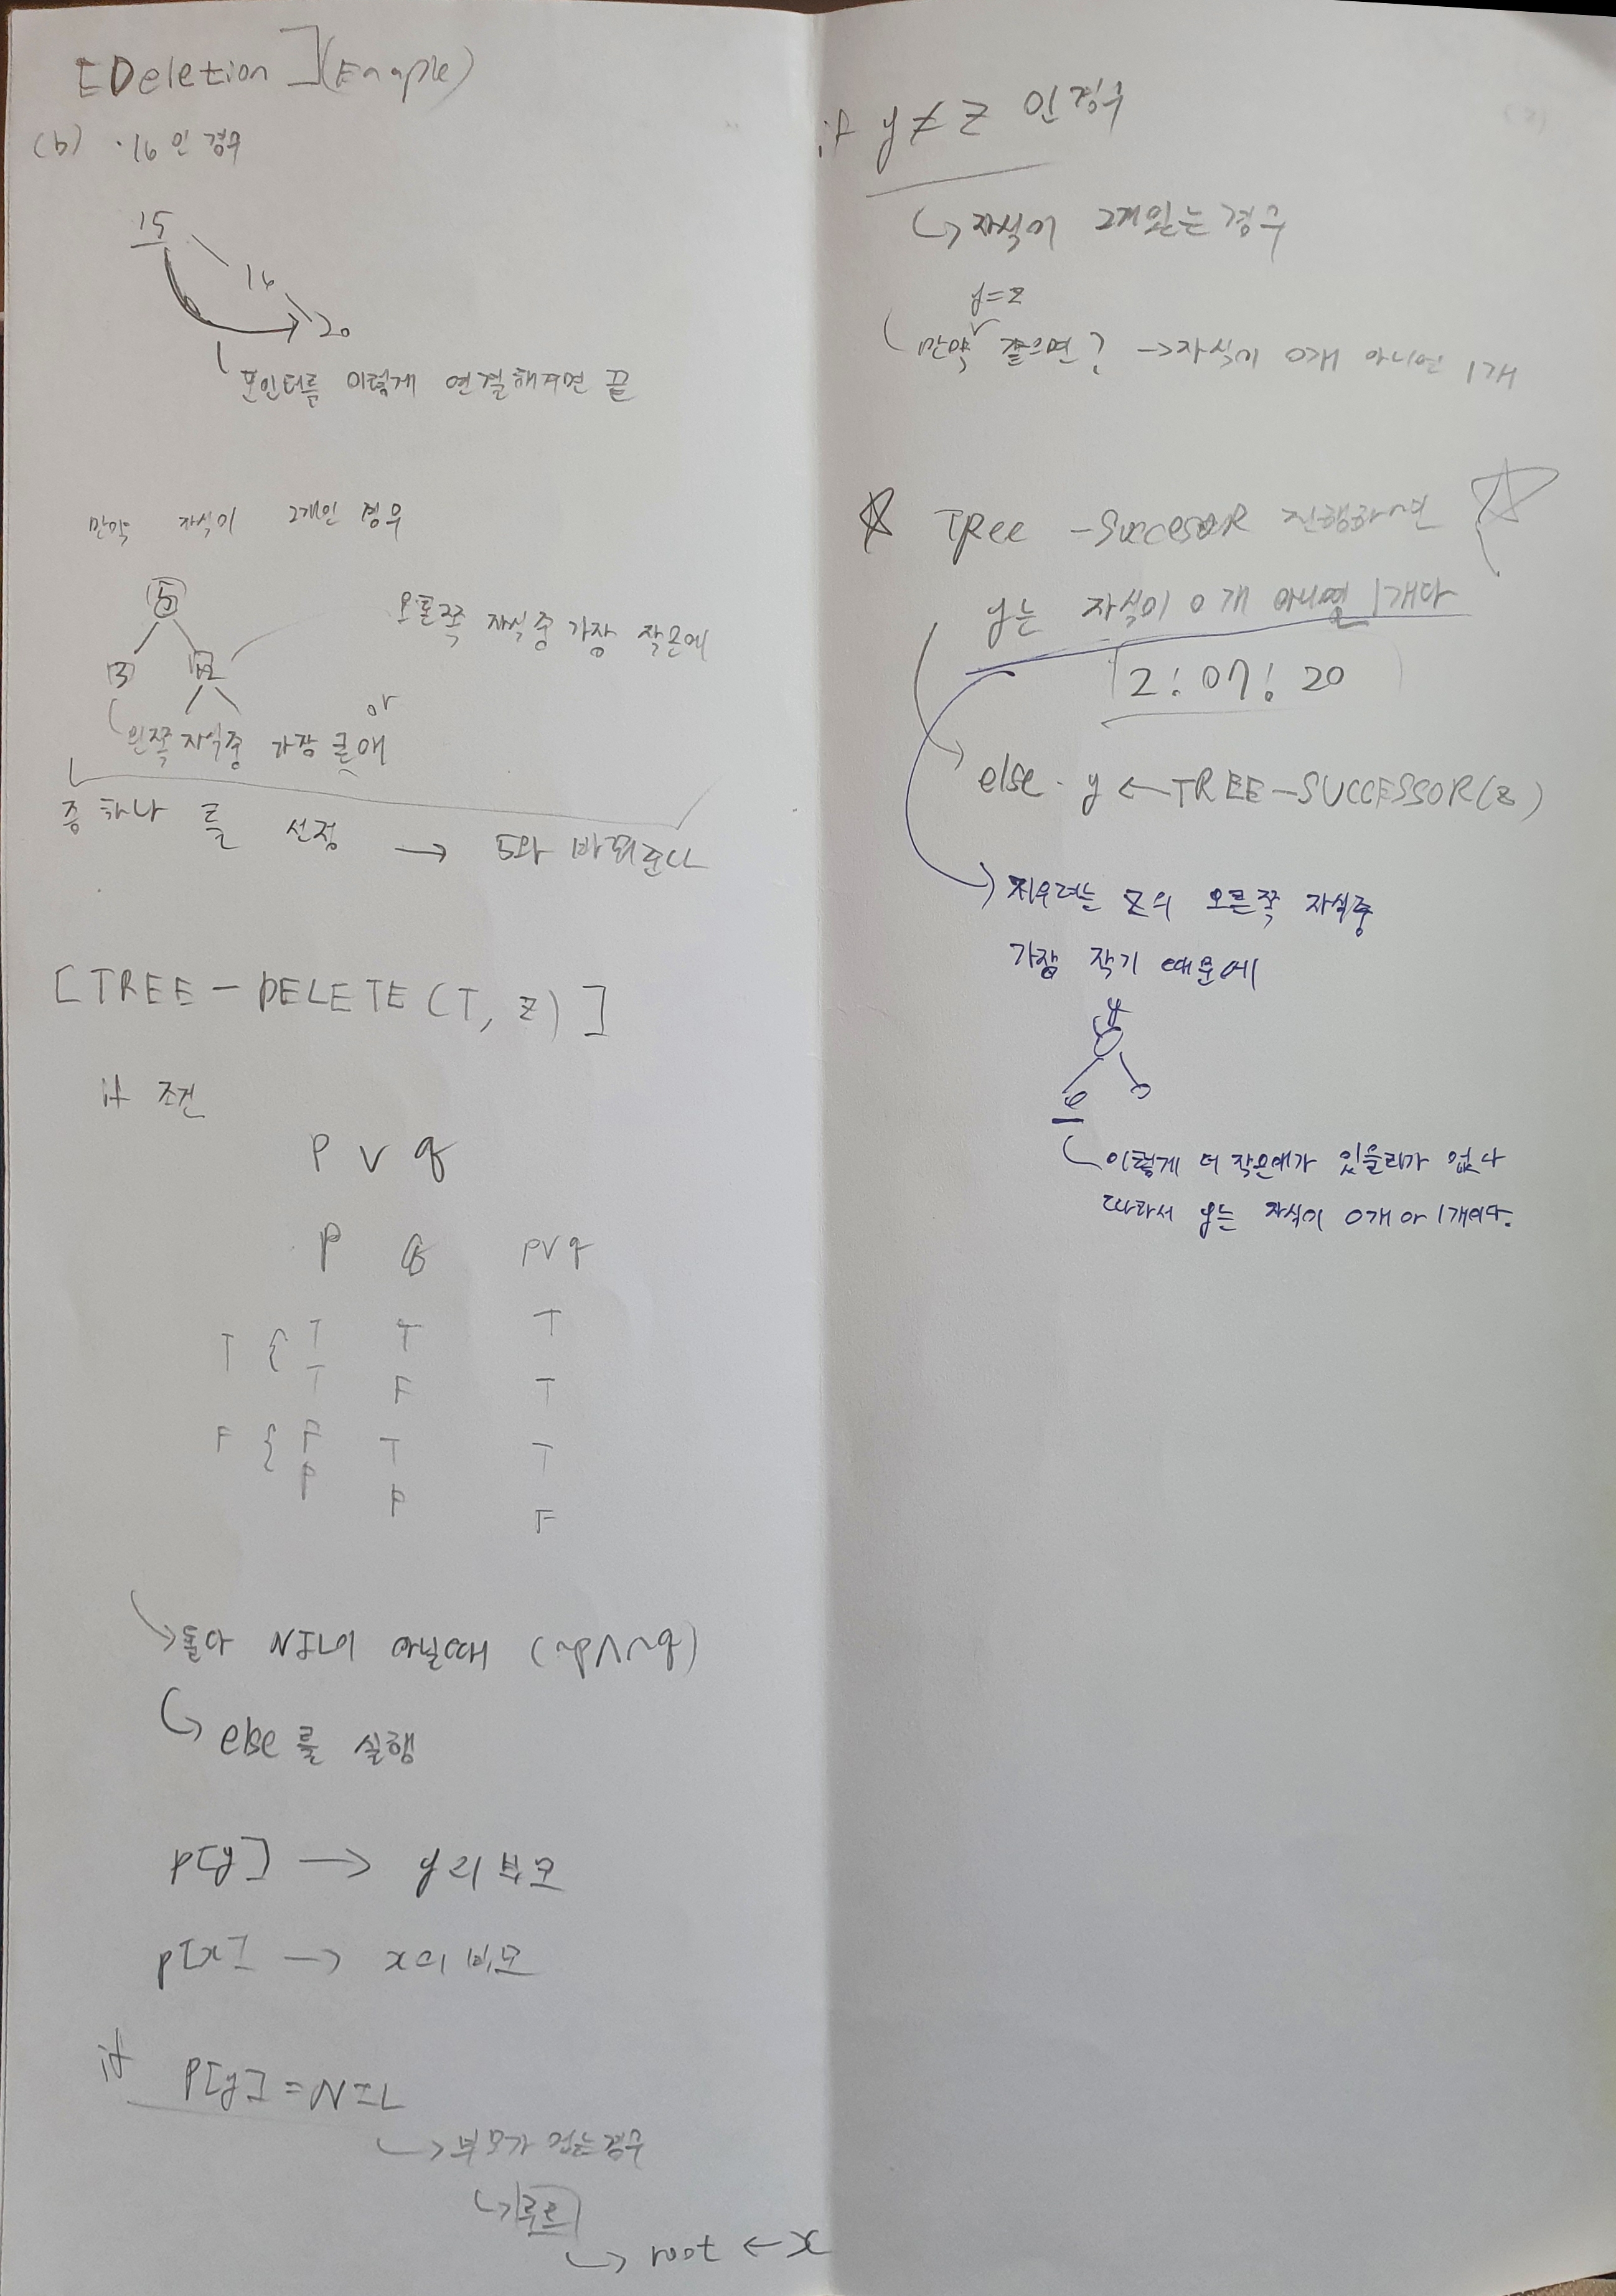 [Deletion] (Example)
(b) ·16인 경우
15
16
20
포인터를 이렇게 연결해주면 끝
만약 자식이 2개인 경우
5
3
12
오른쪽 자식중 가장 작은애
or
왼쪽 자식중 가장 큰애
중 하나 를 선정 → 5와 바꿔준다
[TREE-DELETE(T, z)]
if 조건
P ∨ q
P q p∨q
T { T T T
T F T
F { F T T
F F F
둘다 NIL이 아닐때 (~p∧~q)
else를 실행
p[y] → y의 부모
p[x] → x의 부모
if P[y] = NIL
부모가 없는경우
루트
root ← x
if y≠z 인 경우
자식이 2개있는경우
y=z
만약 같으면? → 자식이 0개 아니면 1개
☆ Tree-SuccesoR 진행하면 ☆
y는 자식이 0개 아니면 1개다
2:07:20
else. y ← TREE-SUCCESSOR(z)
지우려는 z의 오른쪽 자식중
가장 작기 때문에
y
이렇게 더 작은애가 있을리가 없다
따라서 y는 자식이 0개 아 1개이다.